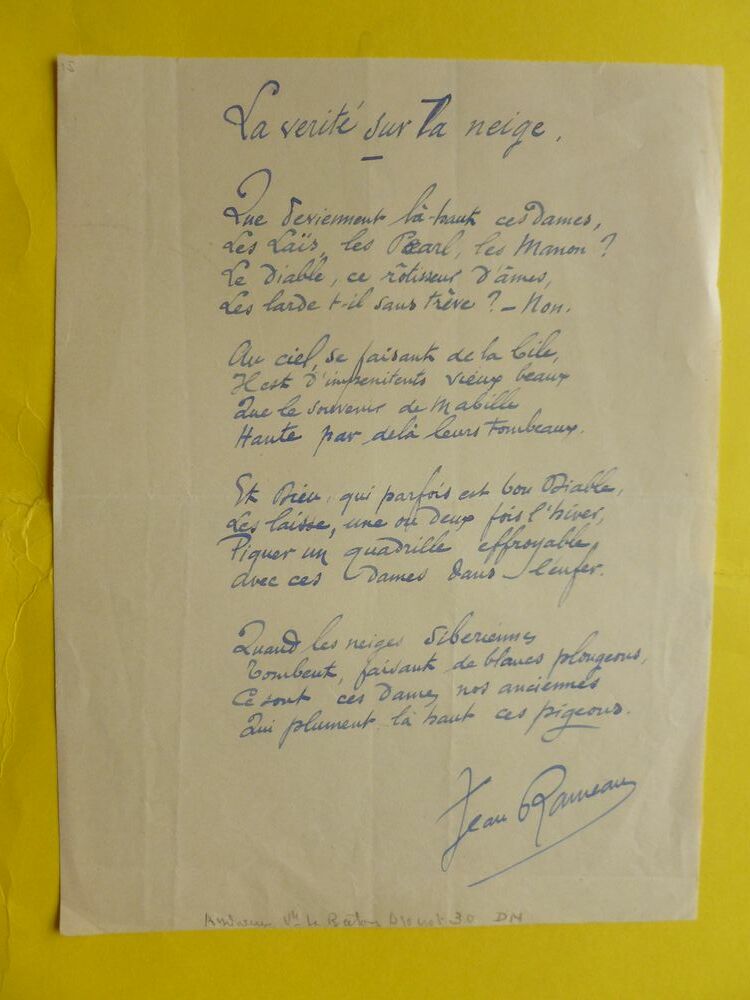 La verité sur la neige.
Que deviennent là-haut ces dames,
Les Laïs, les Pearl, les Manon ?
Le Diable, ce rôtisseur d'âmes,
Les larde t-il sans trêve ? – Non.
Au ciel, se faisant de la bile,
Il est d'impenitents vieux beaux
Que le souvenir de Mabille
Hante par delà leurs tombeaux.
Et Dieu, qui parfois est bon Diable,
Les laisse, une ou deux fois l'hiver,
Piquer un quadrille effroyable,
Avec ces dames dans l'enfer.
Quand les neiges Siberiennes
Tombent, faisant de blancs plongeons,
Ce sont ces Dames, nos anciennes
Qui plument là haut ces pigeons.
Jean Rameau
30 DN